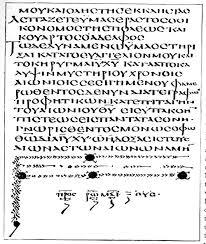 ΜΟΥΚΑΙΟΛΗΤΗϹΕΚΚΛΗϹΙΑϹ
ΑϹΠΑΖΕΤΕΥΜΑϹΕΡΑϹΤΟϹΟΙ
ΚΟΝΟΜΟϹΤΗϹΠΟΛΕΩϹΚΑΙ
ΚΟΥΑΡΤΟϹΟΑΔΕΛΦΟϹ
ΤΩΔΕΔΥΝΑΜΕΝΩΥΜΑϹϹΤΗΡΙ
ΞΑΙΚΑΤΑΤΟΕΥΑΓΓΕΛΙΟΝΜΟΥΚΑΙ
ΤΟΚΗΡΥΓΜΑΙΥΧΥΚΑΤΑΑΠΟΚΑ
ΛΥΨΙΝΜΥϹΤΗΡΙΟΥΧΡΟΝΟΙϹ
ΑΙΩΝΙΟΙϹϹΕϹΙΓΗΜΕΝΟΥΦΑΝΕ
ΡΩΘΕΝΤΟϹΔΕΝΥΝΔΙΑΤΕΓΡΑΦΩ
ΠΡΟΦΗΤΙΚΩΝΚΑΤΕΠΙΤΑΓΗΝ
ΤΟΥΑΙΩΝΙΟΥΘΥΕΙϹΥΠΑΚΟΗΝ
ΠΙϹΤΕΩϹΕΙϹΠΑΝΤΑΤΑΕΘΝΗ
ΓΝΩΡΙϹΘΕΝΤΟϹΜΟΝΩϹΟΦΩ
ΘΩΔΙΑΙΥΧΥΩΗΔΟΞΑΕΙϹΤΟΥϹ
ΑΙΩΝΑϹΤΩΝΑΙΩΝΩΝΑΜΗΝ
ΠΡΟϹ ΡΩΜΑΙΟΥϹ